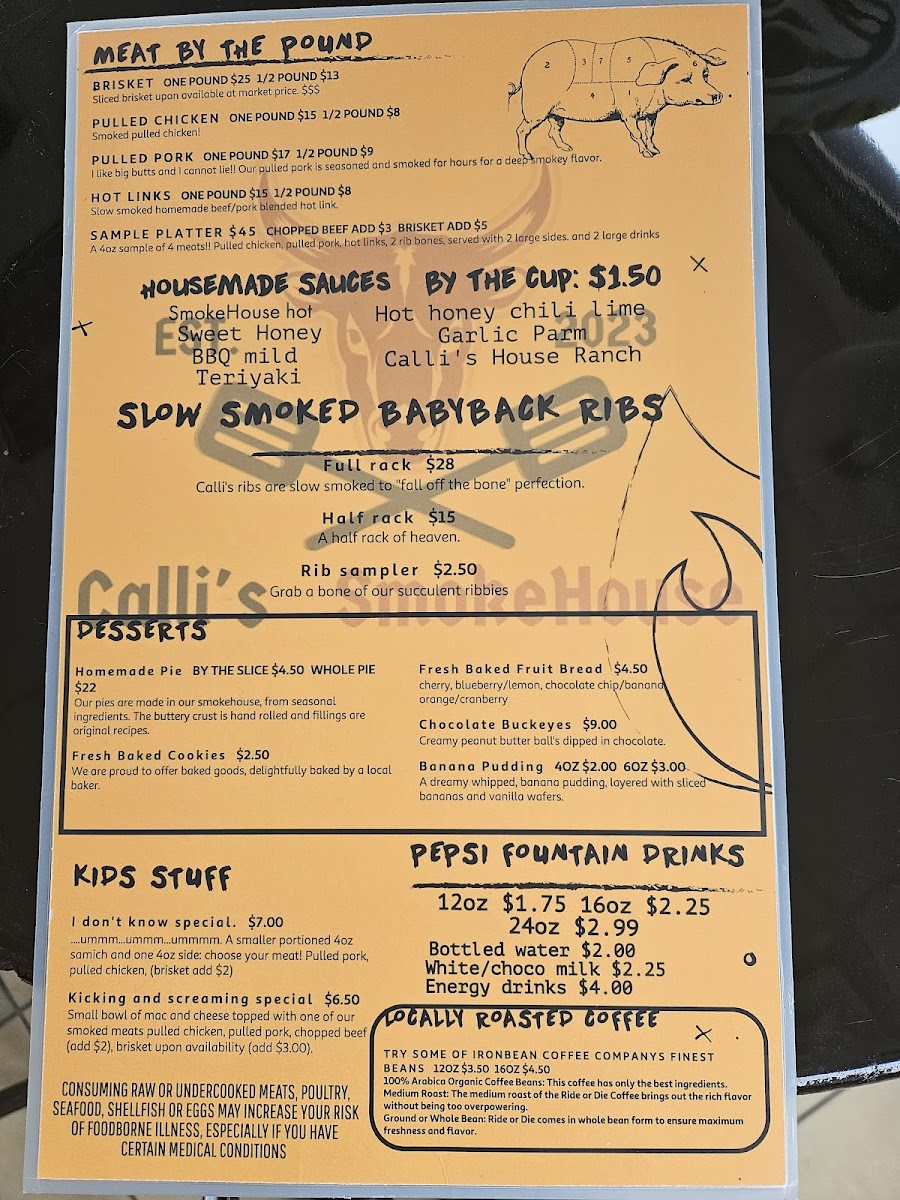 MEAT BY THE POUND
BRISKET ONE POUND $25 1/2 POUND $13
Sliced brisket upon available at market price. $$$
PULLED CHICKEN ONE POUND $15 1/2 POUND $8
Smoked pulled chicken!
PULLED PORK ONE POUND $17 1/2 POUND $9
I like big butts and I cannot lie!! Our pulled pork is seasoned and smoked for hours for a deep smokey flavor.
HOT LINKS ONE POUND $15 1/2 POUND $8
Slow smoked homemade beef/pork blended hot link.
SAMPLE PLATTER $45 CHOPPED BEEF ADD $3 BRISKET ADD $5
A 4oz sample of 4 meats!! Pulled chicken, pulled pork, hot links, 2 rib bones, served with 2 large sides. and 2 large drinks
2 3 7 5 6
4 1
HOUSEMADE SAUCES BY THE CUP: $1.50
SmokeHouse hot
Sweet Honey
BBQ mild
Teriyaki
Hot honey chili lime
Garlic Parm
Calli's House Ranch
EST. 2023
SLOW SMOKED BABYBACK RIBS
Full rack $28
Calli's ribs are slow smoked to "fall off the bone" perfection.
Half rack $15
A half rack of heaven.
Rib sampler $2.50
Grab a bone of our succulent ribbies
Calli's SmokeHouse
DESSERTS
Homemade Pie BY THE SLICE $4.50 WHOLE PIE
$22
Our pies are made in our smokehouse, from seasonal
ingredients. The buttery crust is hand rolled and fillings are
original recipes.
Fresh Baked Cookies $2.50
We are proud to offer baked goods, delightfully baked by a local
baker.
Fresh Baked Fruit Bread $4.50
cherry, blueberry/lemon, chocolate chip/banana,
orange/cranberry
Chocolate Buckeyes $9.00
Creamy peanut butter ball's dipped in chocolate.
Banana Pudding 4OZ $2.00 6OZ $3.00
A dreamy whipped, banana pudding, layered with sliced
bananas and vanilla wafers.
KIDS STUFF
I don't know special. $7.00
....ummm...ummm...ummmm. A smaller portioned 4oz
samich and one 4oz side: choose your meat! Pulled pork,
pulled chicken, (brisket add $2)
Kicking and screaming special $6.50
Small bowl of mac and cheese topped with one of our
smoked meats pulled chicken, pulled pork, chopped beef
(add $2), brisket upon availability (add $3.00).
CONSUMING RAW OR UNDERCOOKED MEATS, POULTRY,
SEAFOOD, SHELLFISH OR EGGS MAY INCREASE YOUR RISK
OF FOODBORNE ILLNESS, ESPECIALLY IF YOU HAVE
CERTAIN MEDICAL CONDITIONS
PEPSI FOUNTAIN DRINKS
12oz $1.75 16oz $2.25
24oz $2.99
Bottled water $2.00
White/choco milk $2.25
Energy drinks $4.00
LOCALLY ROASTED COFFEE
TRY SOME OF IRONBEAN COFFEE COMPANYS FINEST
BEANS 12OZ $3.50 16OZ $4.50
100% Arabica Organic Coffee Beans: This coffee has only the best ingredients.
Medium Roast: The medium roast of the Ride or Die Coffee brings out the rich flavor
without being too overpowering.
Ground or Whole Bean: Ride or Die comes in whole bean form to ensure maximum
freshness and flavor.